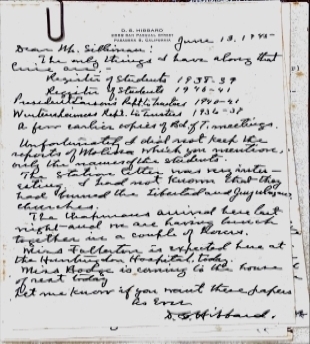 D. S. HIBBARD
PASADENA 8, CALIFORNIA
June 13, 1945
Dear Mr. Silliman:
The only things I have along that
line are:-
Register of Students 1938-39
Register of Students 1940-41
President Carson's Rept to Trustees 1940-41
Rept. to Trustees 1936-38
A few earlier copies of Bd of T. meetings.
Unfortunately I did not keep the
reports of which you mention,
only the names of the students.
The Station letter was very inter-
esting. I had not known that they
had burned the
churches.
The Chapmans arrived here last
night and we are having lunch
together in a couple of hours.
Miss Fullerton is expected here at
the Huntington Hospital, today.
Miss is coming to the house
of rest today
Let me know if you want these papers
As Ever
D. S. Hibbard.